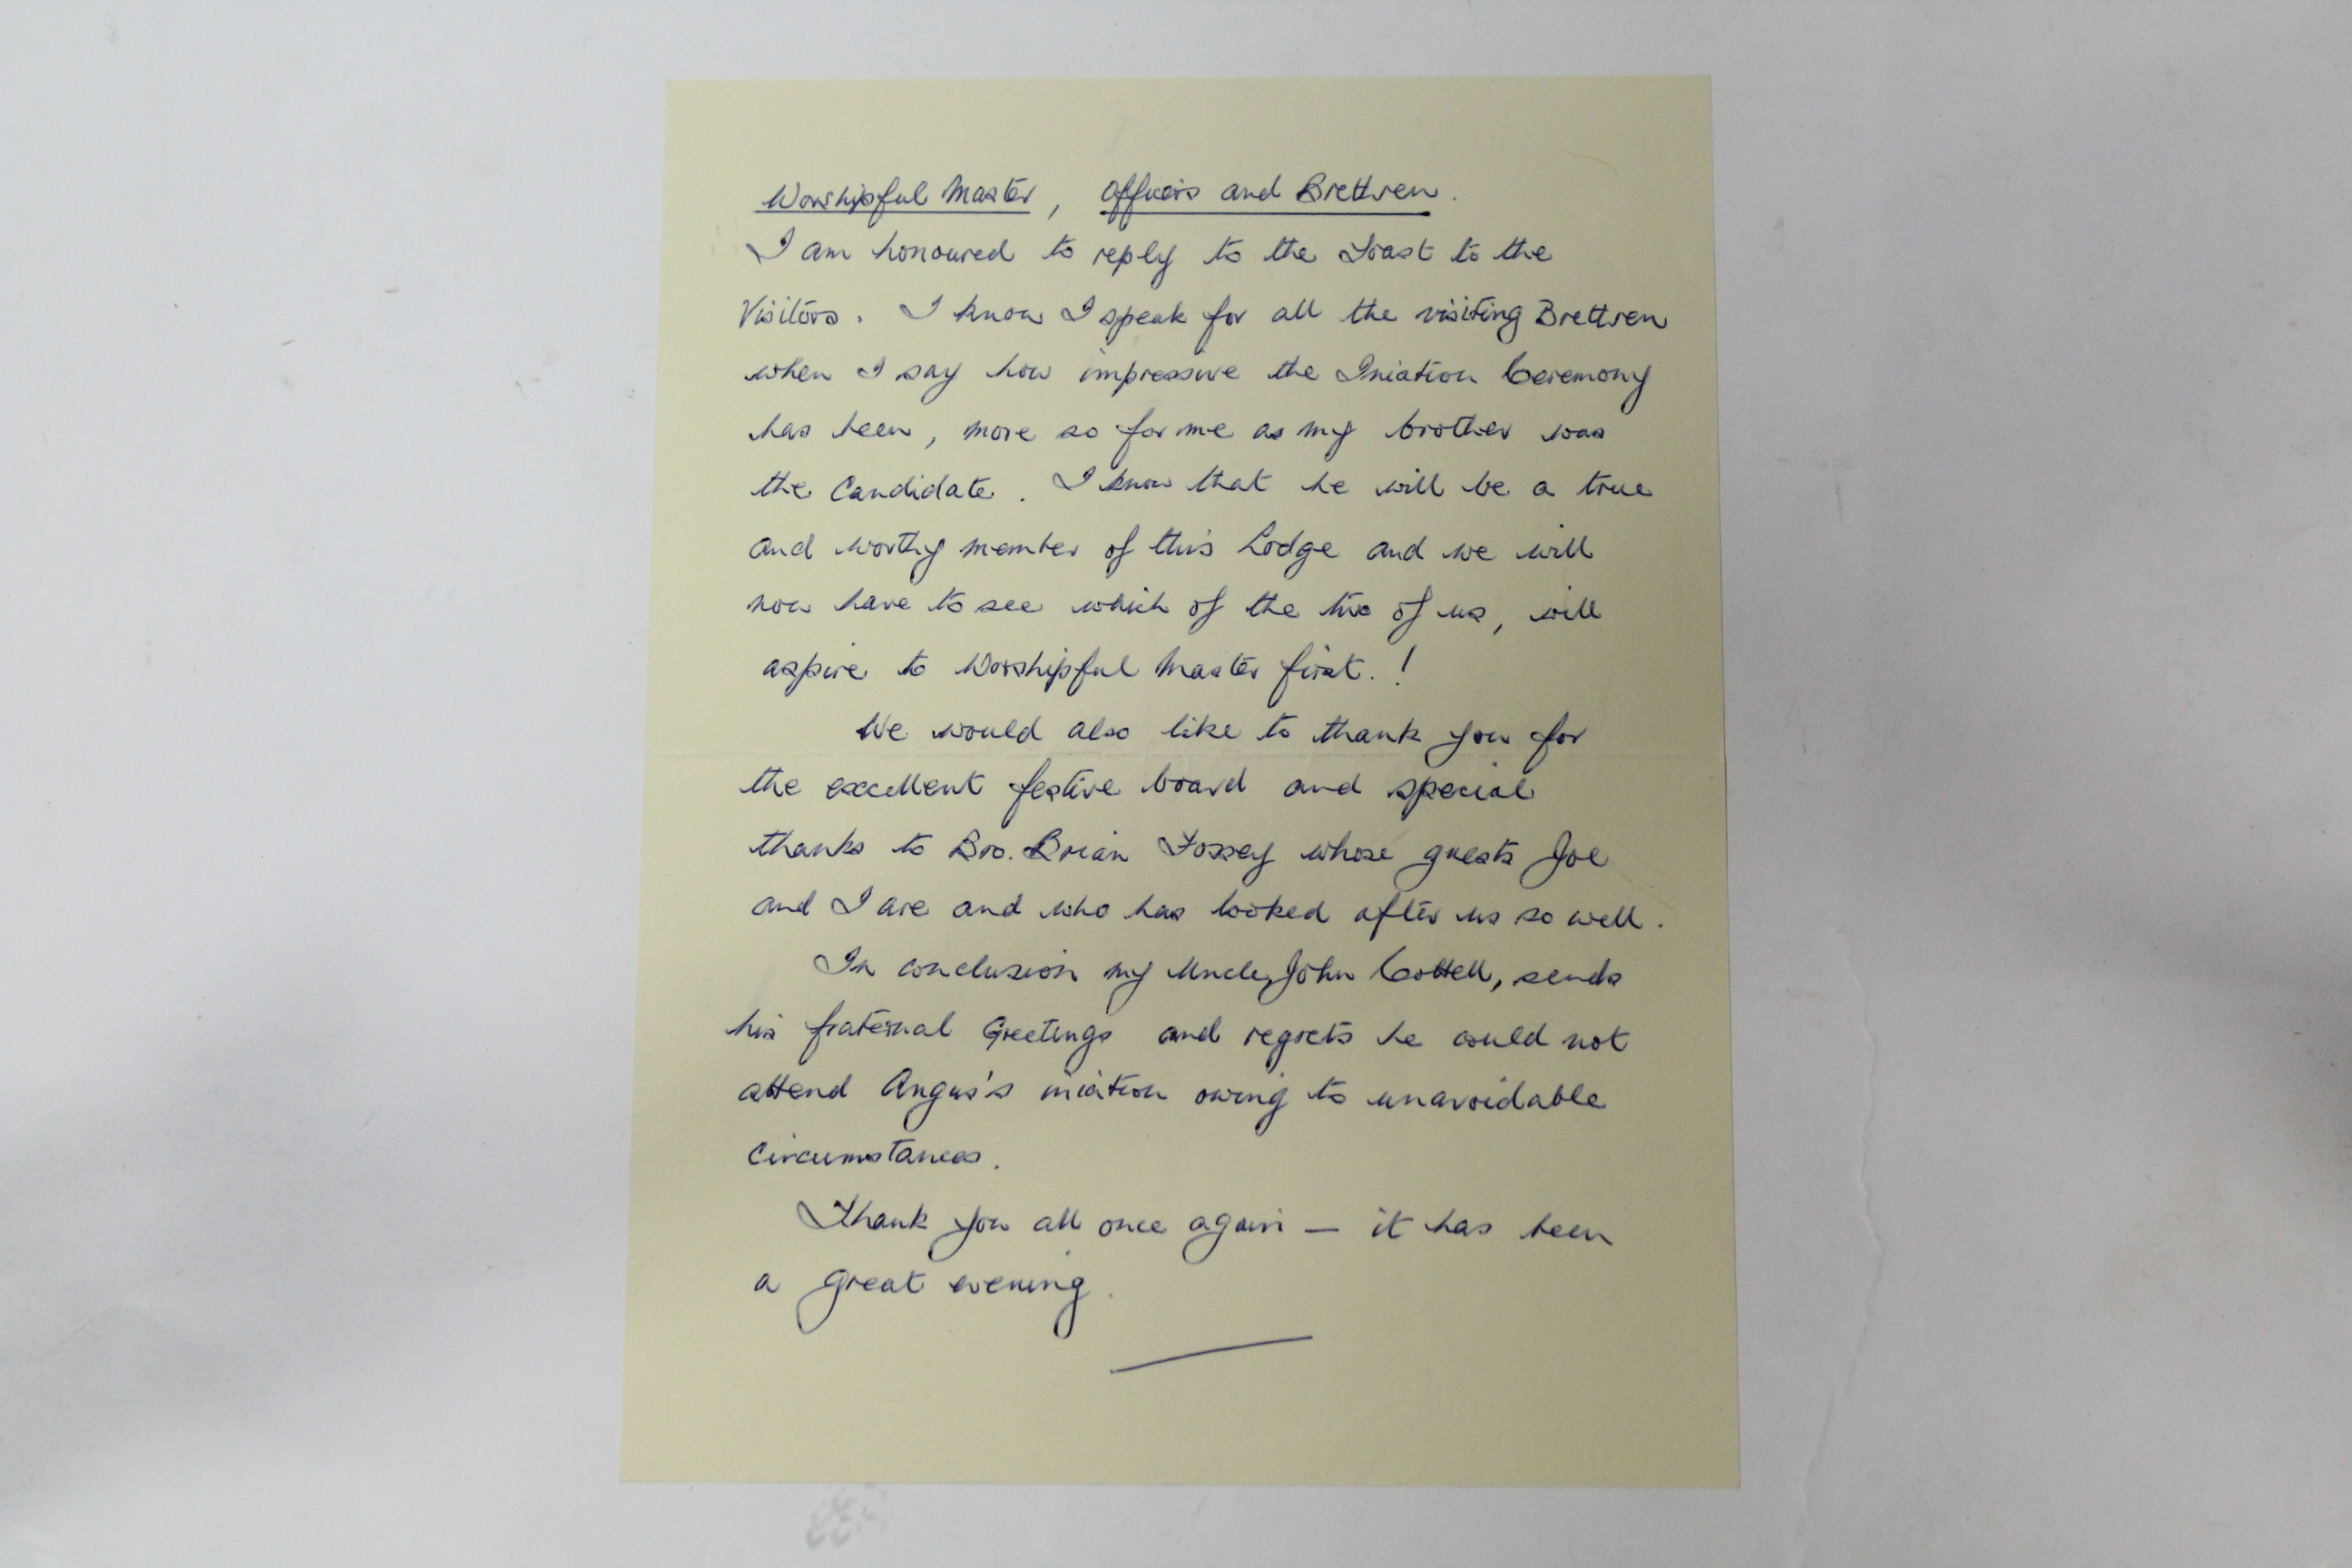 Worshipful Master, Officers and Brethren.
I am honoured to reply to the Toast to the
Visitors. I know I speak for all the visiting Brethren
when I say how impressive the Iniation Ceremony
has been, more so for me as my brother was
the Candidate. I know that he will be a true
and worthy member of this Lodge and we will
now have to see which of the two of us, will
aspire to Worshipful Master first.!
We would also like to thank you for
the excellent festive board and special
thanks to Bro. Brian Fossey whose guests Joe
and I are and who has looked after us so well.
In conclusion my Uncle, John Cottell, sends
his fraternal Greetings and regrets he could not
attend Angus's iniation owing to unavoidable
Circumstances.
Thank you all once again — it has been
a great evening.